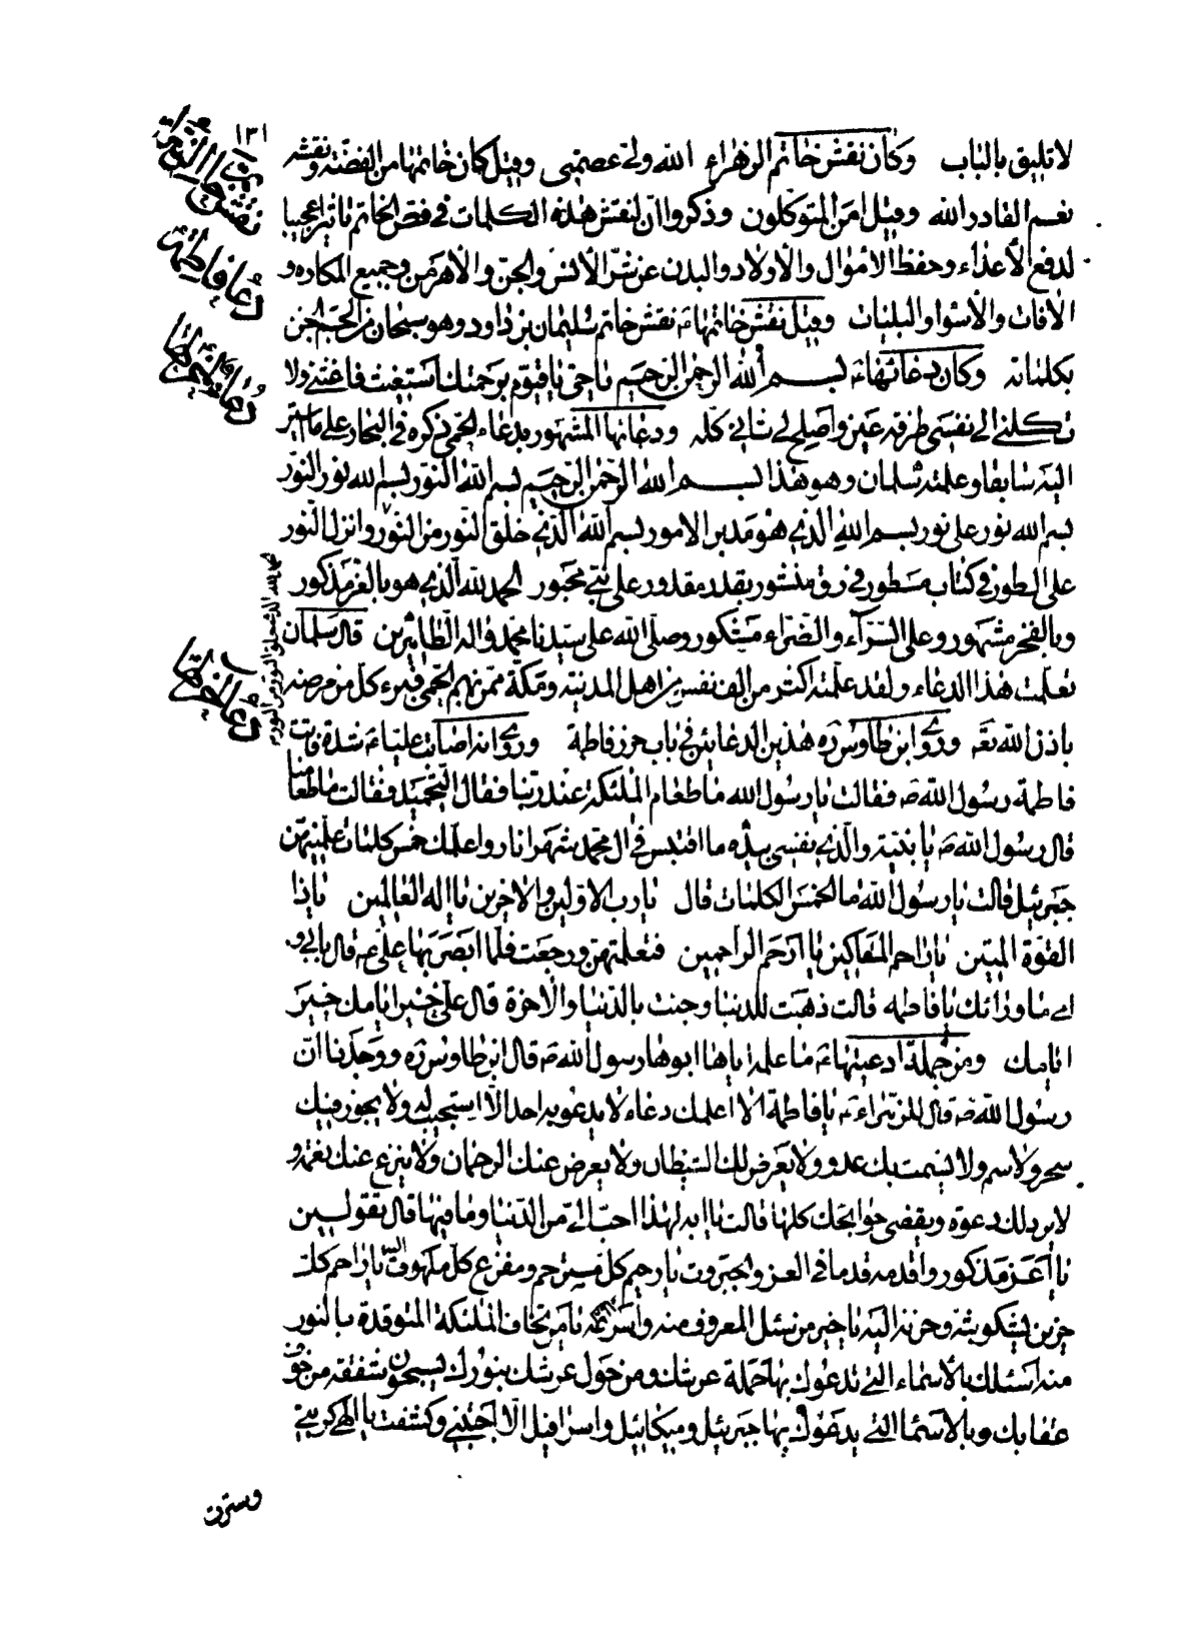 ١٣١
لا تليق بالباب وكان نقش خاتم الزهراء الله ولي عصمتي وقيل كان خاتمها من الفضّة ونقشه
نعم القادر الله وقيل امن المتوكلون وذكروا انّ لنقش هذه الكلمات في فصّ الخاتم تاثيرا عجيبا
لدفع الأعداء وحفظ الاموال والأولاد والبدن عن شرّ الأنس والجن والأهرمن وجميع المكاره و
الآفات والأسواء والبليات وقيل نقش خاتمها ع نقش خاتم سليمان بن داود وهو سبحان من الجم الجن
بكلماته وكان دعائها ع بسم الله الرحمن الرحيم يا حي يا قيوم برحمتك استغيث فاغثني ولا
تكلني الى نفسي طرفة عين واصلح لي شاني كله ودعائها المشهور بدعاء الحمى ذكره في البحار على ما اشير
اليه سابقا وعلمته سلمان وهو هذا بسم الله الرحمن الرحيم بسم الله النور بسم الله نور النور
بسم الله نور على نور بسم الله الذي هو مدبر الامور بسم الله الذي خلق النور من النور وانزل النور
على الطور في كتاب مسطور في رق منشور بقدر مقدور على نبي محبور الحمد لله الذي هو بالعز مذكور
وبالفخر مشهور وعلى السرّاء والضراء مشكور وصلى الله على سيدنا محمد واله الطاهرين قال سلمان
تعلمت هذا الدعاء ولقد علمته اكثر من الف نفس من اهل المدينة ومكة ممن بهم الحمى فبرء كل من مرضه
باذن الله تعه وروى ابن طاوس ره هذين الدعائين في باب حرز فاطمة وروى انه اصابت عليا ع شدة فاتت
فاطمة رسول الله ص فقالت يا رسول الله ما طعام الملئكة عند ربنا فقال التحميد فقالت ما طعامنا
قال رسول الله ص يا بنية والذي نفسي بيده ما اقتبس في ال محمد شهرا نار واعلمك خمس كلمات علمنيهن
جبرئيل قالت يا رسول الله ما الخمس الكلمات قال يا رب الاولين والاخرين يا اله العالمين يا ذا
القوة المتين يا راحم المساكين يا ارحم الراحمين فتعلمتهن ورجعت فلما ابصر بها علي ع قال بابي و
امي ما ورائك يا فاطمه قالت ذهبت للدنيا وجئت بالدنيا والاخرة قال علي خير ايامك خير
ايامك ومن جملة ادعيتها ع ما علمه اياها ابوها رسول الله ص قال ابن طاوس ره ووجدنا انّ
رسول الله ص قال للزهراء ع يا فاطمة الا اعلمك دعاء لا يدعو به احد الّا استجيب له ولا يجوز فيك
سحر ولا سم ولا يشمت بك عدو ولا يعرض لك الشيطان ولا يعرض عنك الرحمان ولا ينزع عنك نعمة و
لا يرد لك دعوة ويقضي حوائجك كلها قالت يا ابه لهذا احب الي من الدنيا وما فيها قال تقولين
يا اعز مذكور واقدمه قدما في العز والجبروت يا رحيم كل مسترحم ومفزع كل ملهوف اليه يا راحم كل
حزين يشكو بثه وحزنه اليه يا خير من سئل المعروف منه واسرعه يا من يخاف الملئكة المتوقدة بالنور
منه اسئلك بالأسماء التي تدعوك بها حملة عرشك ومن حول عرشك بنورك يسبحون شفقة من خوف
عقابك وبالأسماء التي يدعوك بها جبرئيل وميكائيل واسرافيل الّا اجبتني وكشفت يا الهي كربتي
وسترت
دعاء فاطمة